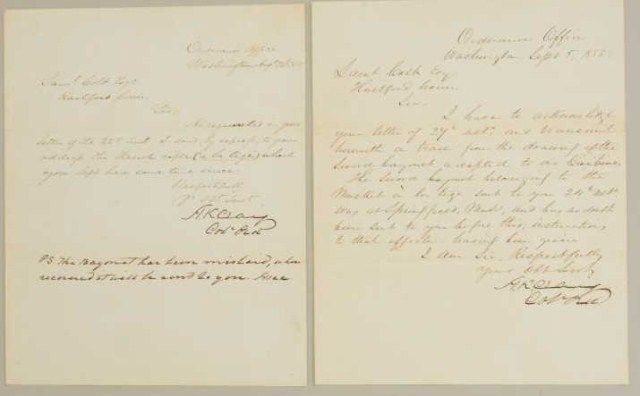 Ordnance Office
Washington
Saml. Colt Esqr
Hartford Conn.
Sir,
As requested in your
letter of the 22d inst. I send by express, to your
address the
Respectfully
Yr Obt Servt
A K Craig
Col. Ord
P.S. The Bayonet has been mislaid, when
recovered it will be sent to you. AKC
Ordnance Office
Washington Sept 5, 185
Saml Colt Esq
Hartford Conn
Sir
I have to acknowledge
your letter of 29th ult. and transmit
herewith a trace from the drawing of the
Sword bayonet adapted to our Carbine.
The Sword bayonet belonging to the
Musket a la tige sent to you 24th ult
was at Springfield, Mass, and has no doubt
been sent to you before this, instructions
to that effect having been given
I am Sir Respectfully
Your Obt Servt
A K Craig
Col. Ord